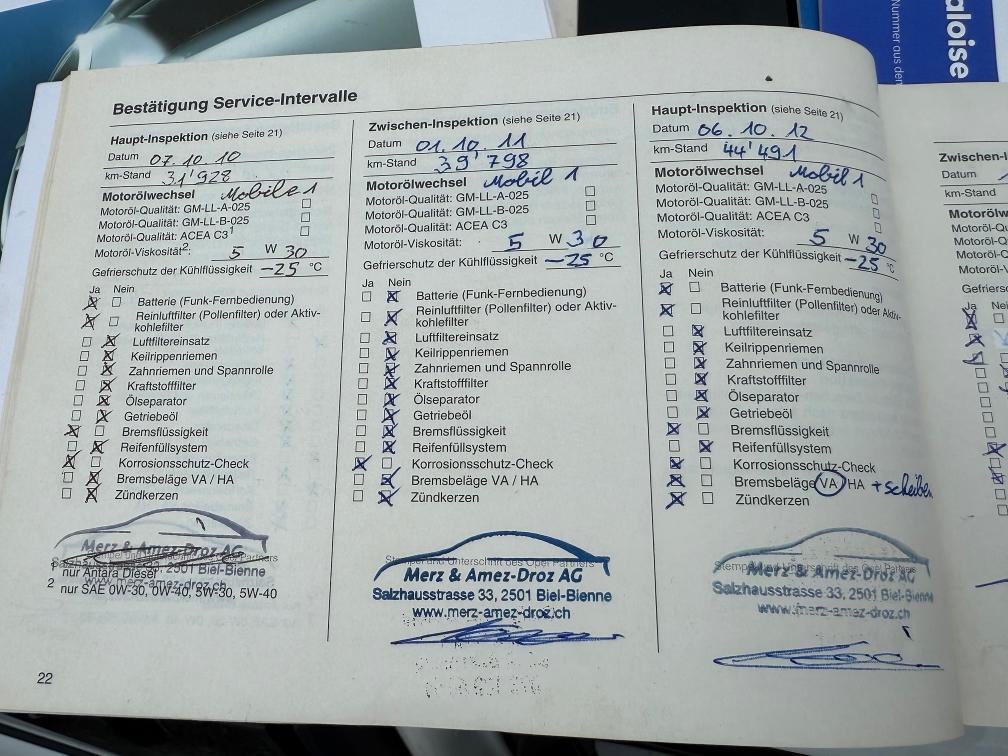 aloise
Nummer aus den
Bestätigung Service-Intervalle
Haupt-Inspektion (siehe Seite 21)
Datum 07.10.10
km-Stand 31'928
Motorölwechsel Mobile 1
Motoröl-Qualität: GM-LL-A-025
Motoröl-Qualität: GM-LL-B-025
Motoröl-Qualität: ACEA C3¹
Motoröl-Viskosität²: 5 W 30
Gefrierschutz der Kühlflüssigkeit -25 °C
Ja Nein
Batterie (Funk-Fernbedienung)
Reinluftfilter (Pollenfilter) oder Aktiv-
kohlefilter
Luftfiltereinsatz
Keilrippenriemen
Zahnriemen und Spannrolle
Kraftstofffilter
Ölseparator
Getriebeöl
Bremsflüssigkeit
Reifenfüllsystem
Korrosionsschutz-Check
Bremsbeläge VA / HA
Zündkerzen
Merz & Amez-Droz AG
Salzhausstrasse 33, 2501 Biel-Bienne
www.merz-amez-droz.ch
nur Antara Diesel
2 nur SAE 0W-30, 0W-40, 5W-30, 5W-40
22
Zwischen-Inspektion (siehe Seite 21)
Datum 01.10.11
km-Stand 39'798
Motorölwechsel Mobil 1
Motoröl-Qualität: GM-LL-A-025
Motoröl-Qualität: GM-LL-B-025
Motoröl-Qualität: ACEA C3
Motoröl-Viskosität: 5 W 30
Gefrierschutz der Kühlflüssigkeit -25 °C
Ja Nein
Batterie (Funk-Fernbedienung)
Reinluftfilter (Pollenfilter) oder Aktiv-
kohlefilter
Luftfiltereinsatz
Keilrippenriemen
Zahnriemen und Spannrolle
Kraftstofffilter
Ölseparator
Getriebeöl
Bremsflüssigkeit
Reifenfüllsystem
Korrosionsschutz-Check
Bremsbeläge VA / HA
Zündkerzen
Stempel und Unterschrift des Opel Partners
Merz & Amez-Droz AG
Salzhausstrasse 33, 2501 Biel-Bienne
www.merz-amez-droz.ch
Haupt-Inspektion (siehe Seite 21)
Datum 06.10.12
km-Stand 44'491
Motorölwechsel Mobil 1
Motoröl-Qualität: GM-LL-A-025
Motoröl-Qualität: GM-LL-B-025
Motoröl-Qualität: ACEA C3
Motoröl-Viskosität: 5 W 30
Gefrierschutz der Kühlflüssigkeit -25 °C
Ja Nein
Batterie (Funk-Fernbedienung)
Reinluftfilter (Pollenfilter) oder Aktiv-
kohlefilter
Luftfiltereinsatz
Keilrippenriemen
Zahnriemen und Spannrolle
Kraftstofffilter
Ölseparator
Getriebeöl
Bremsflüssigkeit
Reifenfüllsystem
Korrosionsschutz-Check
Bremsbeläge VA / HA + scheiben
Zündkerzen
Stempel und Unterschrift des Opel Partners
Merz & Amez-Droz AG
Salzhausstrasse 33, 2501 Biel-Bienne
www.merz-amez-droz.ch
Zwischen-I
Datum
km-Stand
Motorölw
Motoröl-Qu
Motoröl-Qu
Motoröl-Q
Motoröl-V
Gefriersc
Ja Nei